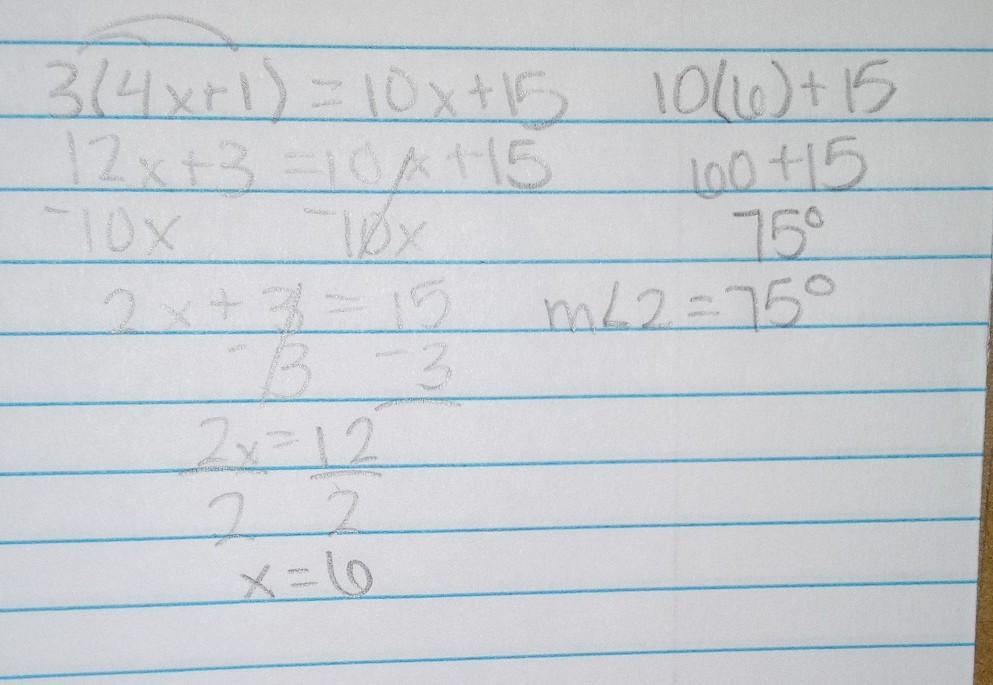 3(4x+1) = 10x+15
12x+3 = 10x+15
-10x -10x
2x + 3 = 15
-3 -3
2x = 12
2 2
x = 6
10(6)+15
60+15
75°
m∠2 = 75°